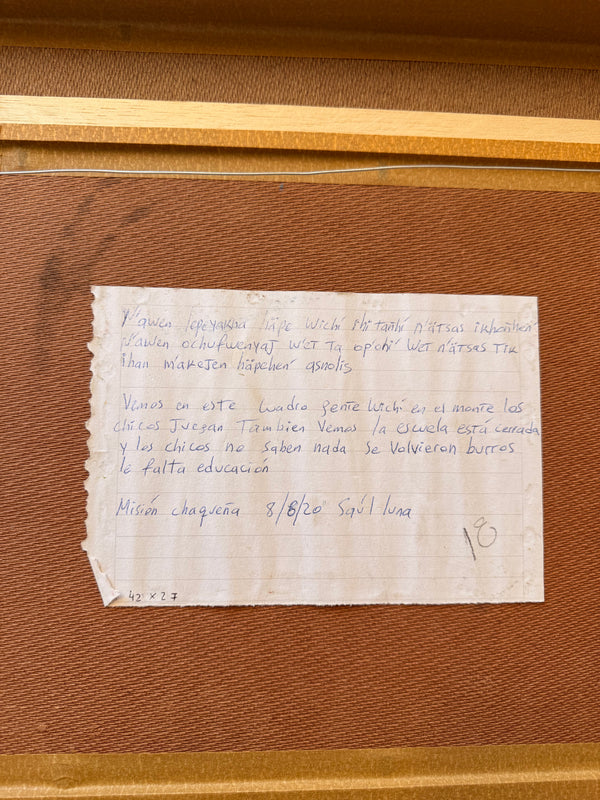 N'awen lopeyakha häpe wichí ihi tañhí n'ätsas ikhoñhen
N'awen ochufwenyaj w'et ta op'ohi' wet n'ätsas Tik
ihan m'akejen häpchen' asnolis
Vemos en este cuadro gente wichí en el monte los
chicos Juegan Tambien Vemos la escuela está cerrada
y los chicos no saben nada se volvieron burros
le falta educación
Misión chaqueña 8/8/20 Saúl luna
18
42 x 27